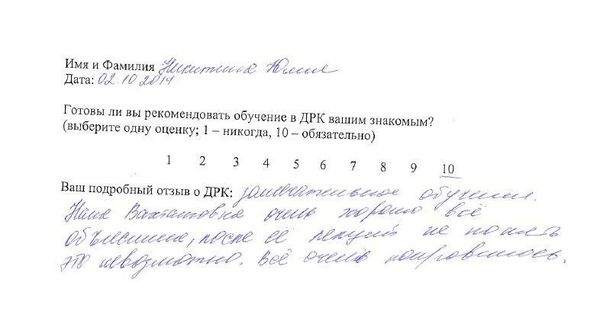 Имя и Фамилия Никитина Юлия
Дата: 02.10.2014
Готовы ли вы рекомендовать обучение в ДРК вашим знакомым?
(выберите одну оценку; 1 – никогда, 10 – обязательно)
1 2 3 4 5 6 7 8 9 10
Ваш подробный отзыв о ДРК: замечательное обучения.
Вахтанговна очень хорошо всё
объяснила, после её лекций не понять
это невозможно. Всё очень понравилось.